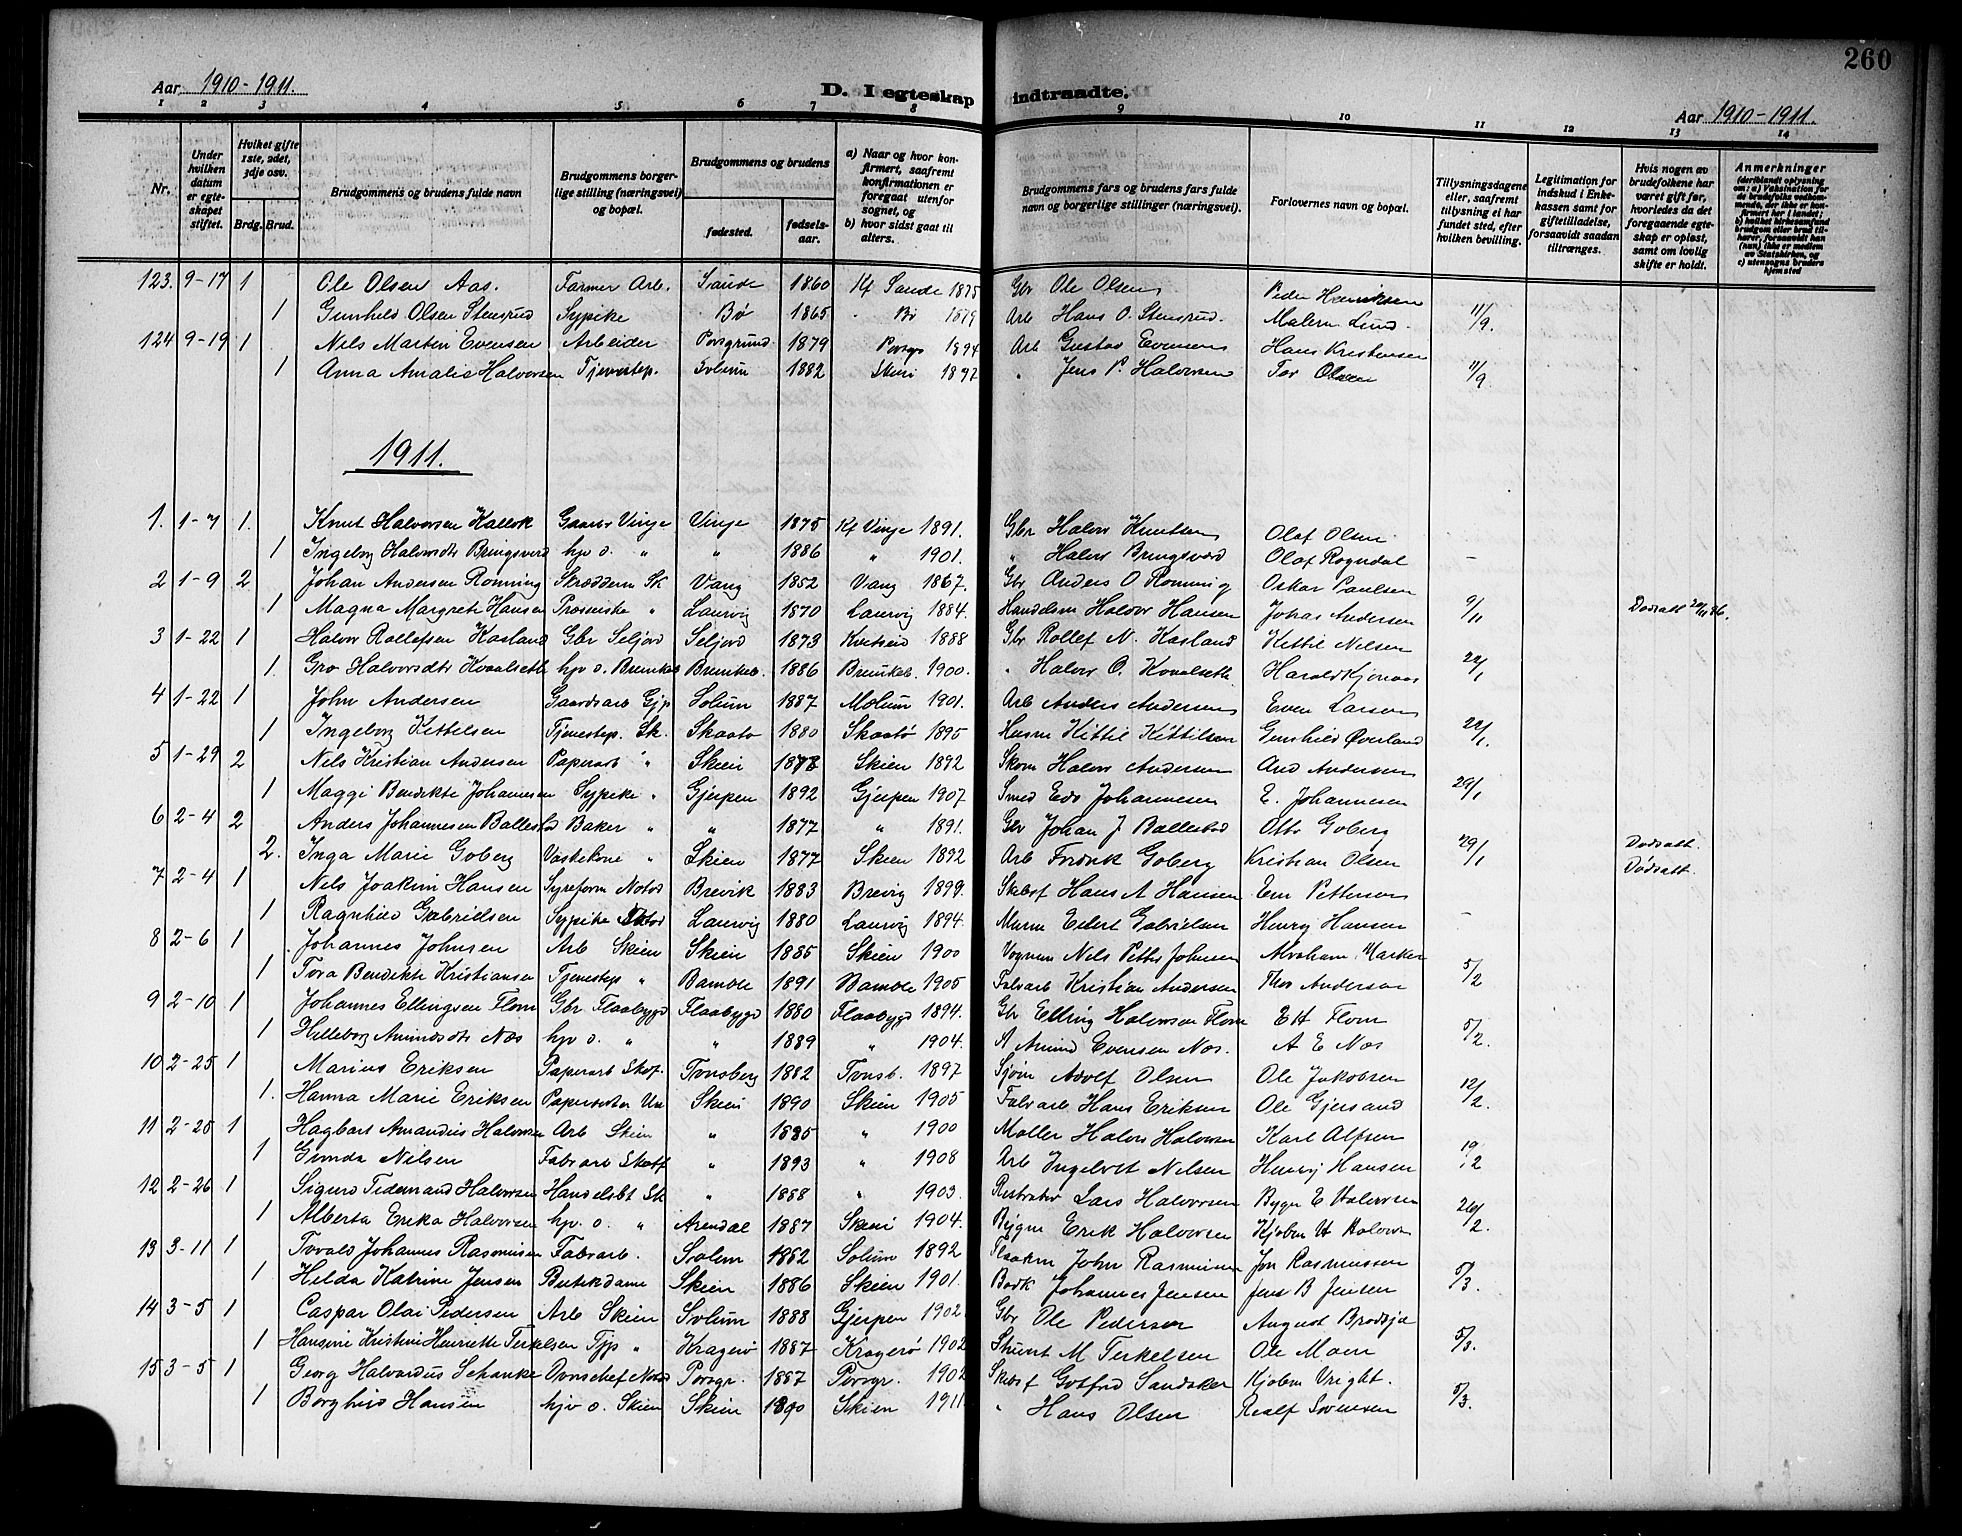 260
Aar 1910-1911.
D. I egteskap indtraadte.
Aar 1910-1911.
1 2 3 4 5 6 7 8 9 10 11 12 13 14
Nr.
Under hvilken datum er egteskapet stiftet.
Hvilket gifte 1ste, 2det, 3dje osv.
Brdg. Brud.
Brudgommens og brudens fulde navn
Brudgommens borgerlige stilling (næringsvei) og bopæl.
Brudgommens og brudens
fødested. fødselsaar.
a) Naar og hvor konfirmert, saafremt konfirmationen er foregaat utenfor sognet, og
b) hvor sidst gaat til alters.
Brudgommens fars og brudens fars fulde navn og borgerlige stillinger (næringsvei).
Forlovernes navn og bopæl.
Tillysningsdagene eller, saafremt tillysning ei har fundet sted, efter hvilken bevilling.
Legitimation for indskud i Enkekassen samt for giftetilladelse, forsaavidt saadan tiltrænges.
Hvis nogen av brudefolkene har været gift før, hvorledes da det foregaaende egteskap er opløst, samt om lovlig skifte er holdt.
Anmerkninger
(deriblandt oplysning om: a) Vaksination for de brudefolks vedkommende, der ikke er konfirmert her i landet; b) hvilket kirkesamfund brudgom eller brud tilhører, forsaavidt han (hun) ikke er medlem av Statskirken, og c) utensogns bruders hjemsted
123. 9-17 1 Ole Olsen Aas. Farmer Arb. Saude 1860 Kf Saude 1875 Gbr Ole Olsen Peder Henriksen
1 Gunhild Olsen Stensrud Sypike Bø 1865 Bø 1879 Arb Hans O. Stensrud. Malerm Lund. 11/9.
124 9-19 1 Nils Martin Evensen Arbeider Porsgrund 1879 Porsgr 1894 Arb Gustav Evensen Hans Kristensen
1 Anna Amalie Halvorsen Tjenestep. Solum 1882 Skien 1897 " Jens P. Halvorsen Tor Olsen 11/9.
1911.
1. 1-7 1. Knut Halvorsen Kallok Gaardbr Vinje Vinje 1875 Kf Vinje 1891. Gbr Halvor Knutsen Olaf Olsen
1 Ingeborg Halvorsdtr Bringsverd hjv o. " " 1886 " 1901. " Halvor Bringsverd Olaf Rogndal -
2 1-9 2 Johan Andersen Rønning Skrædderm Sk Vang 1852 Vang 1867. Gbr Anders O Rønning Oskar Paulsen
1 Magna Margrete Hansen Prosenske " Laurvig 1870 Laurvig 1884. Handelsm Halvor Hansen Johas Andersen 9/11 Dødsatt 29/11 86.
3 1-22 1 Halvor Rollefsen Kasland Gbr Seljord Seljord 1873 Kvitseid 1888 Gbr Rollef N. Kasland Kittil Nilsen
1. Gro Halvorsdtr Kovalseth hjv o. Brunkeb Brunkeb. 1886 Brunkeb. 1900. " Halvor O. Kovalseth Harald Kjonaas 22/1
4 1-22 1 John Andersen Gaardsarb Gjp Solum 1887 Molum 1901. Arb Anders Andersen Even Larsen
1 Ingeborg Kittelsen Tjenestep. Sk. Skaatø 1880 Skaatø 1895 Husm Kittil Kittilsen Gunhild Øverland 22/1.
5 1-29 2 Nils Kristian Andersen Paperarb " Skien 1878 Skien 1892 Skom Halvor Andersen And Andersen
1 Maggi Bendikte Johannesen Sypike " Gjerpen 1892 Gjerpen 1907 Smed Edv Johannesen E. Johannesen 29/1
6 2-4 2 Anders Johannesen Ballestad Baker " " 1877 " 1891. Gbr Johan J Ballestad Otto Goberg
2. Inga Marie Goberg Vaskekone " Skien 1877 Skien 1892 Arb Fredrik Goberg Kristian Olsen 29/1 Dødsatt. Dødsatt.
7 2-4 1 Nils Joakim Hansen Syreform Notod Brevik 1883 Brevig 1899. Skibsf Hans A Hansen Einr Pettersen
1 Ragnhild Gabrielsen Sypike Notod Laurvig 1880 Laurvig 1894. Murm Eilert Gabrielsen Henry Hansen -
8 2-6 1 Johannes Johnsen Arb Skien Skien 1885 Skien 1900 Vognm Nils Petter Johnsen Abraham Marker
1 Tora Bendikte Kristiansen Tjenestep " Bamble 1891 Bamble 1905 Fabrarb Kristian Andersen Thor Anderson 5/2
9 2-10 1 Johannes Ellingsen Flom Gbr. Flaabygd Flaabygd 1880 Flaabygd 1894. Gbr Elling Halvorsen Flom E H Flom
1 Hilleborg Amundsdtr Næs hjv o. " " 1889 " 1904. " Amund Evensen Næs. A E Næs 5/2.
10 2-25 1 Marius Eriksen Paperarb Skot. Tønsberg 1882 Tønsb. 1897 Sjøm Adolf Olsen Ole Jakobsen
1. Hanna Marie Eriksen Papersorter Un Skien 1890 Skien 1905 Fabrarb Hans Eriksen Ole Gjersund 12/2.
11 2-25 1 Hagbart Amandus Halvorsen Arb Skien " 1885 " 1900 Møller Halvor Halvorsen Karl Alfsen
1 Gunda Nilsen Fabrarb Skotf " 1893 " 1908 Arb Ingebret Nilsen Henry Hansen 19/2
12 2-26 1 Sigurd Tidemand Halvorsen Handelsbt Sk " 1888 " 1903. Restratør Lars Halvorsen Bygm E Halvorsen
1 Alberta Erika Halvorsen hjv. o. " Arendal 1887 Skien 1904. Bygm Erik Halvorsen Kjøbm H Halvorsen 26/2.
13 3-11 1 Torvald Johannes Rasmusen Fabrarb. Solum 1882 Solum 1892 Flaatm John Rasmusen Jon Rasmussen
1 Hilda Katrine Jensen Butikdame Skien 1886 Skien 1901. Bødk Johannes Jensen Jens B Jensen 5/3.
14 3-5 1 Caspar Olai Pedersen Arb Skien Solum 1888 Gjerpen 1902 Gbr Ole Pedersen August Brødsjø
1 Hansine Kristine Henriette Terkelsen Tjp " Kragerø 1887 Kragerø 1902 M Terkelsen Ole Moen 5/3.
15 3-5 1 Georg Halvardus Schanke Ovnschef Notod Porsgr. 1887 Porsgr. 1902 Skibsf Gotfred Sandaker Kjøbm Wright.
1 Borghild Hansen hjv o. Skien Skien 1890 Skien 1911 " Hans Olsen Realf Sørensen 5/3.